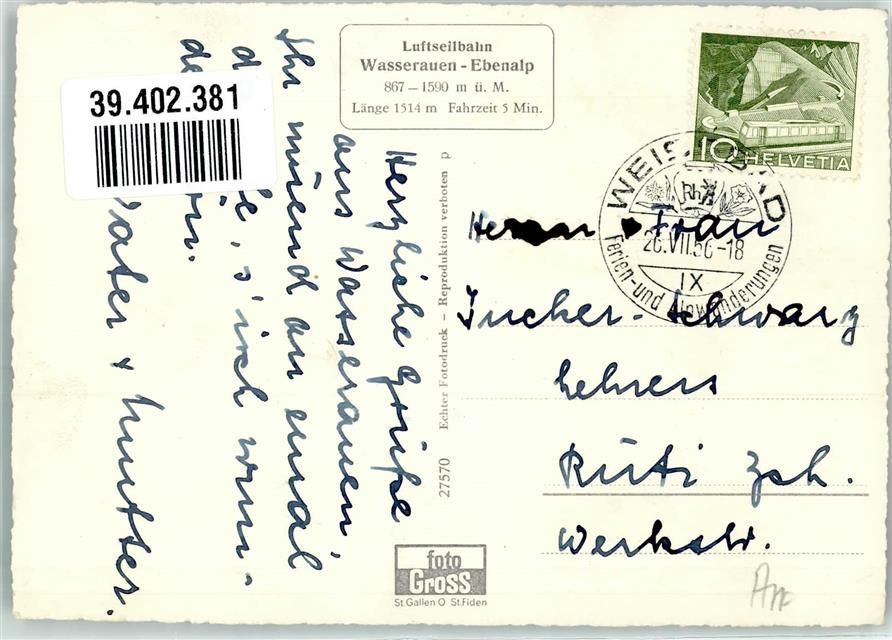 Luftseilbahn
Wasserauen - Ebenalp
867 – 1590 m ü. M.
Länge 1514 m Fahrzeit 5 Min.
39.402.381
Herzliche Grüße
aus Wasserauen,
Ihr müend au emal
d
de, s'isch wun-
de
Vater + Mutter.
27570 Echter Fotodruck – Reproduktion verboten p
foto
Gross
St.Gallen O St.Fiden
10 HELVETIA
WEISSBAD
Rh
26.VII.56-18
IX
Ferien- und Alpwanderungen
Herrn + Frau
Zucker-Schwarz
Lehrers
Rüti Zch.
Werkstr.